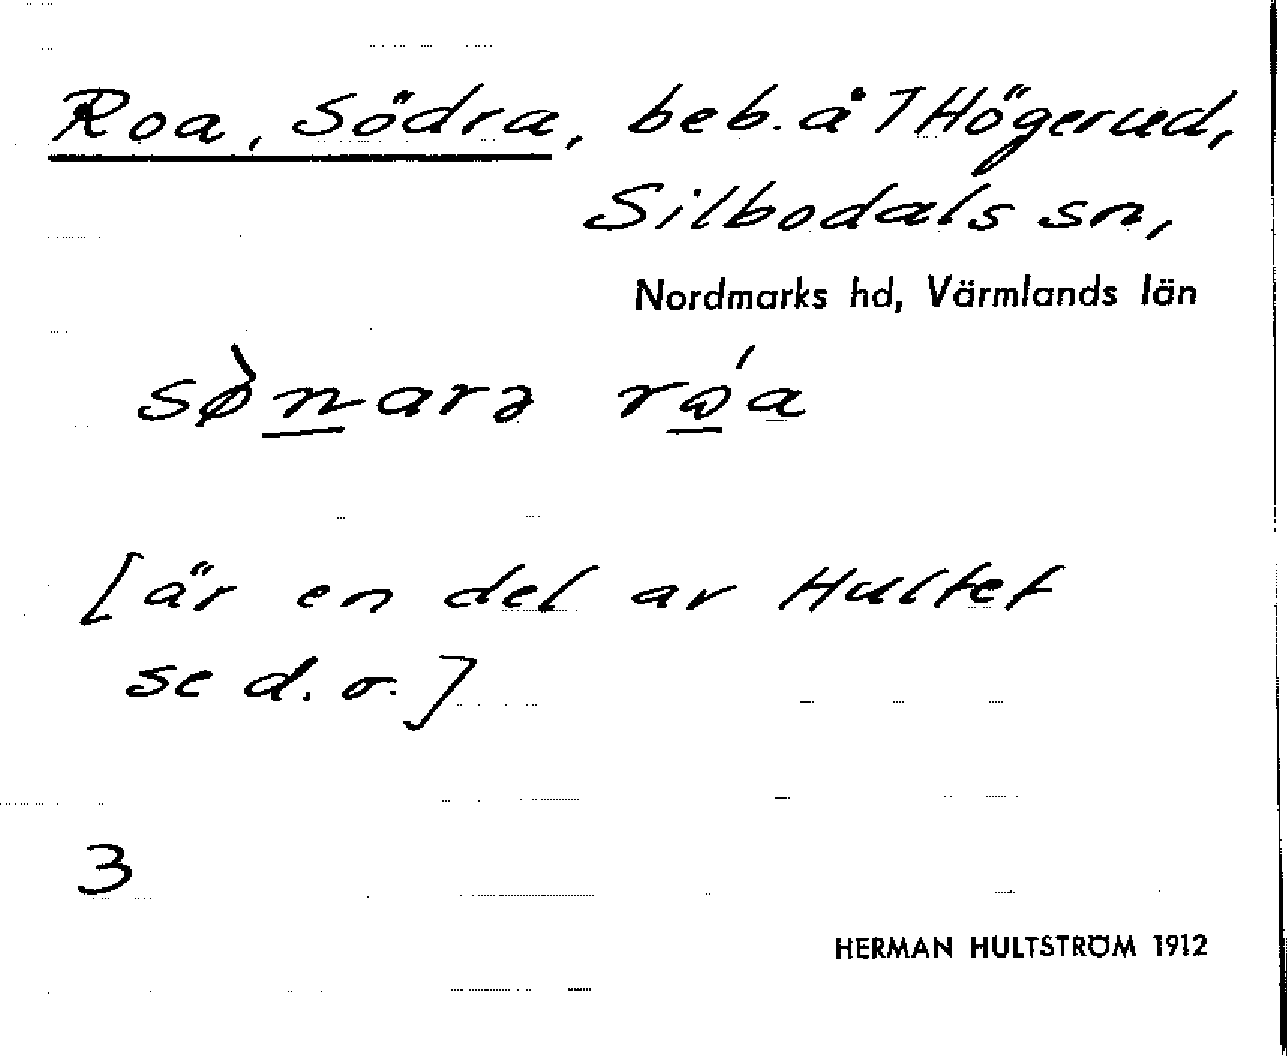 Roa, Södra, beb. å 1 Högerud,
Silbodals sn,
Nordmarks hd, Värmlands län
sø̀narə róa
[är en del av Hultet
se d.o.]
3
HERMAN HULTSTRÖM 1912